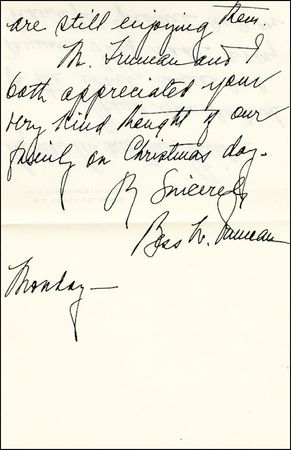 are still enjoying them.
Mr. Truman and I
both appreciated your
very kind thought of our
family on Christmas day.
Sincerely,
Bess W. Truman
Monday—